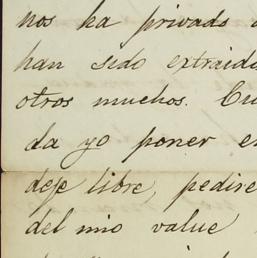 nos ha privado
han sido extraido
otros muchos.
da yo poner en
deje libre, pedire
del mio value